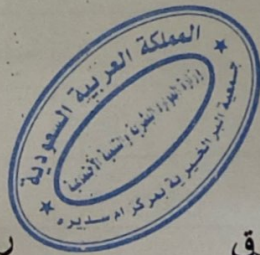 المملكة العربية السعودية
وزارة الموارد البشرية والتنمية الاجتماعية
جمعية البر الخيرية بمركز ام سديره
ق